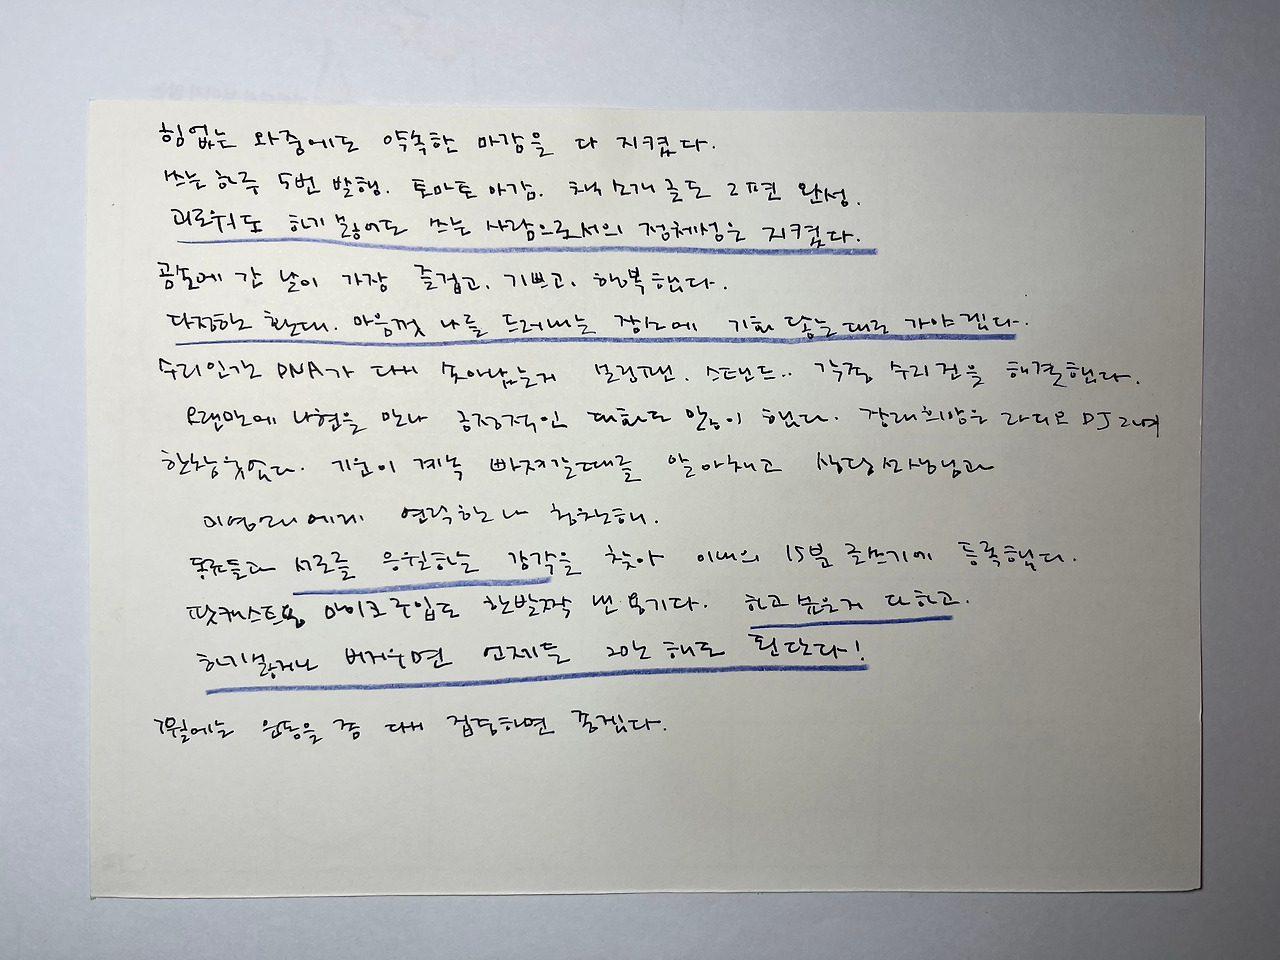 힘없는 와중에도 약속한 마감을 다 지켰다.
쓰는 하루 5번 발행. 토마토 마감. 책 소개 글도 2편 완성.
괴로워도 하기 싫어도 쓰는 사람으로서의 정체성을 지켰다.
공도에 간 날이 가장 즐겁고, 기쁘고, 행복했다.
다정하고 환대. 마음껏 나를 드러내는 장소에 기회 닿는대로 가야겠다.
수리인간 DNA가 다시 솟아났는지 보정팬. 스탠드.. 각종 수리건을 해결했다.
오랜만에 나현을 만나 긍정적인 대화도 많이 했다. 장래희망은 라디오 DJ
한참 웃었다. 기운이 계속 빠져갈때를 알아채고 상담선생님과
에게 연락하고 나 청원해.
동료들과 서로를 응원하는 감각을 찾아 이내의 15분 글쓰기에 등록했다.
팟캐스트용 마이크 구입도 한발짝 낸 용기다. 하고 싶은거 다하고.
하기 싫거나 버거우면 언제든 그만 해도 된단다!
7월에는 운동을 좀 다시 접목하면 좋겠다.